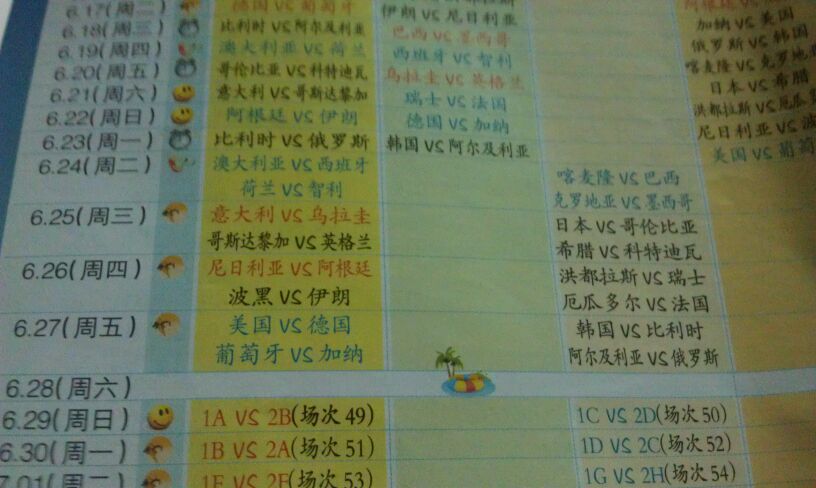 6.17(周二) 德国 VS 葡萄牙
6.18(周三) 比利时 VS 阿尔及利亚 伊朗 VS 尼日利亚
6.19(周四) 澳大利亚 VS 荷兰 巴西 VS 墨西哥 加纳 VS 美国
6.20(周五) 哥伦比亚 VS 科特迪瓦 西班牙 VS 智利 俄罗斯 VS 韩国
6.21(周六) 意大利 VS 哥斯达黎加 乌拉圭 VS 英格兰 喀麦隆 VS 克罗地
6.22(周日) 阿根廷 VS 伊朗 瑞士 VS 法国 日本 VS 希腊
6.23(周一) 比利时 VS 俄罗斯 德国 VS 加纳 洪都拉斯 VS 厄瓜
6.24(周二) 澳大利亚 VS 西班牙 韩国 VS 阿尔及利亚 尼日利亚 VS 波
荷兰 VS 智利 喀麦隆 VS 巴西 美国 VS 葡萄
克罗地亚 VS 墨西哥
6.25(周三) 意大利 VS 乌拉圭 日本 VS 哥伦比亚
哥斯达黎加 VS 英格兰 希腊 VS 科特迪瓦
6.26(周四) 尼日利亚 VS 阿根廷 洪都拉斯 VS 瑞士
波黑 VS 伊朗 厄瓜多尔 VS 法国
6.27(周五) 美国 VS 德国 韩国 VS 比利时
葡萄牙 VS 加纳 阿尔及利亚 VS 俄罗斯
6.28(周六)
6.29(周日) 1A VS 2B(场次 49) 1C VS 2D(场次 50)
6.30(周一) 1B VS 2A(场次 51) 1D VS 2C(场次 52)
7.01(周二) 1E VS 2F(场次 53) 1G VS 2H(场次 54)